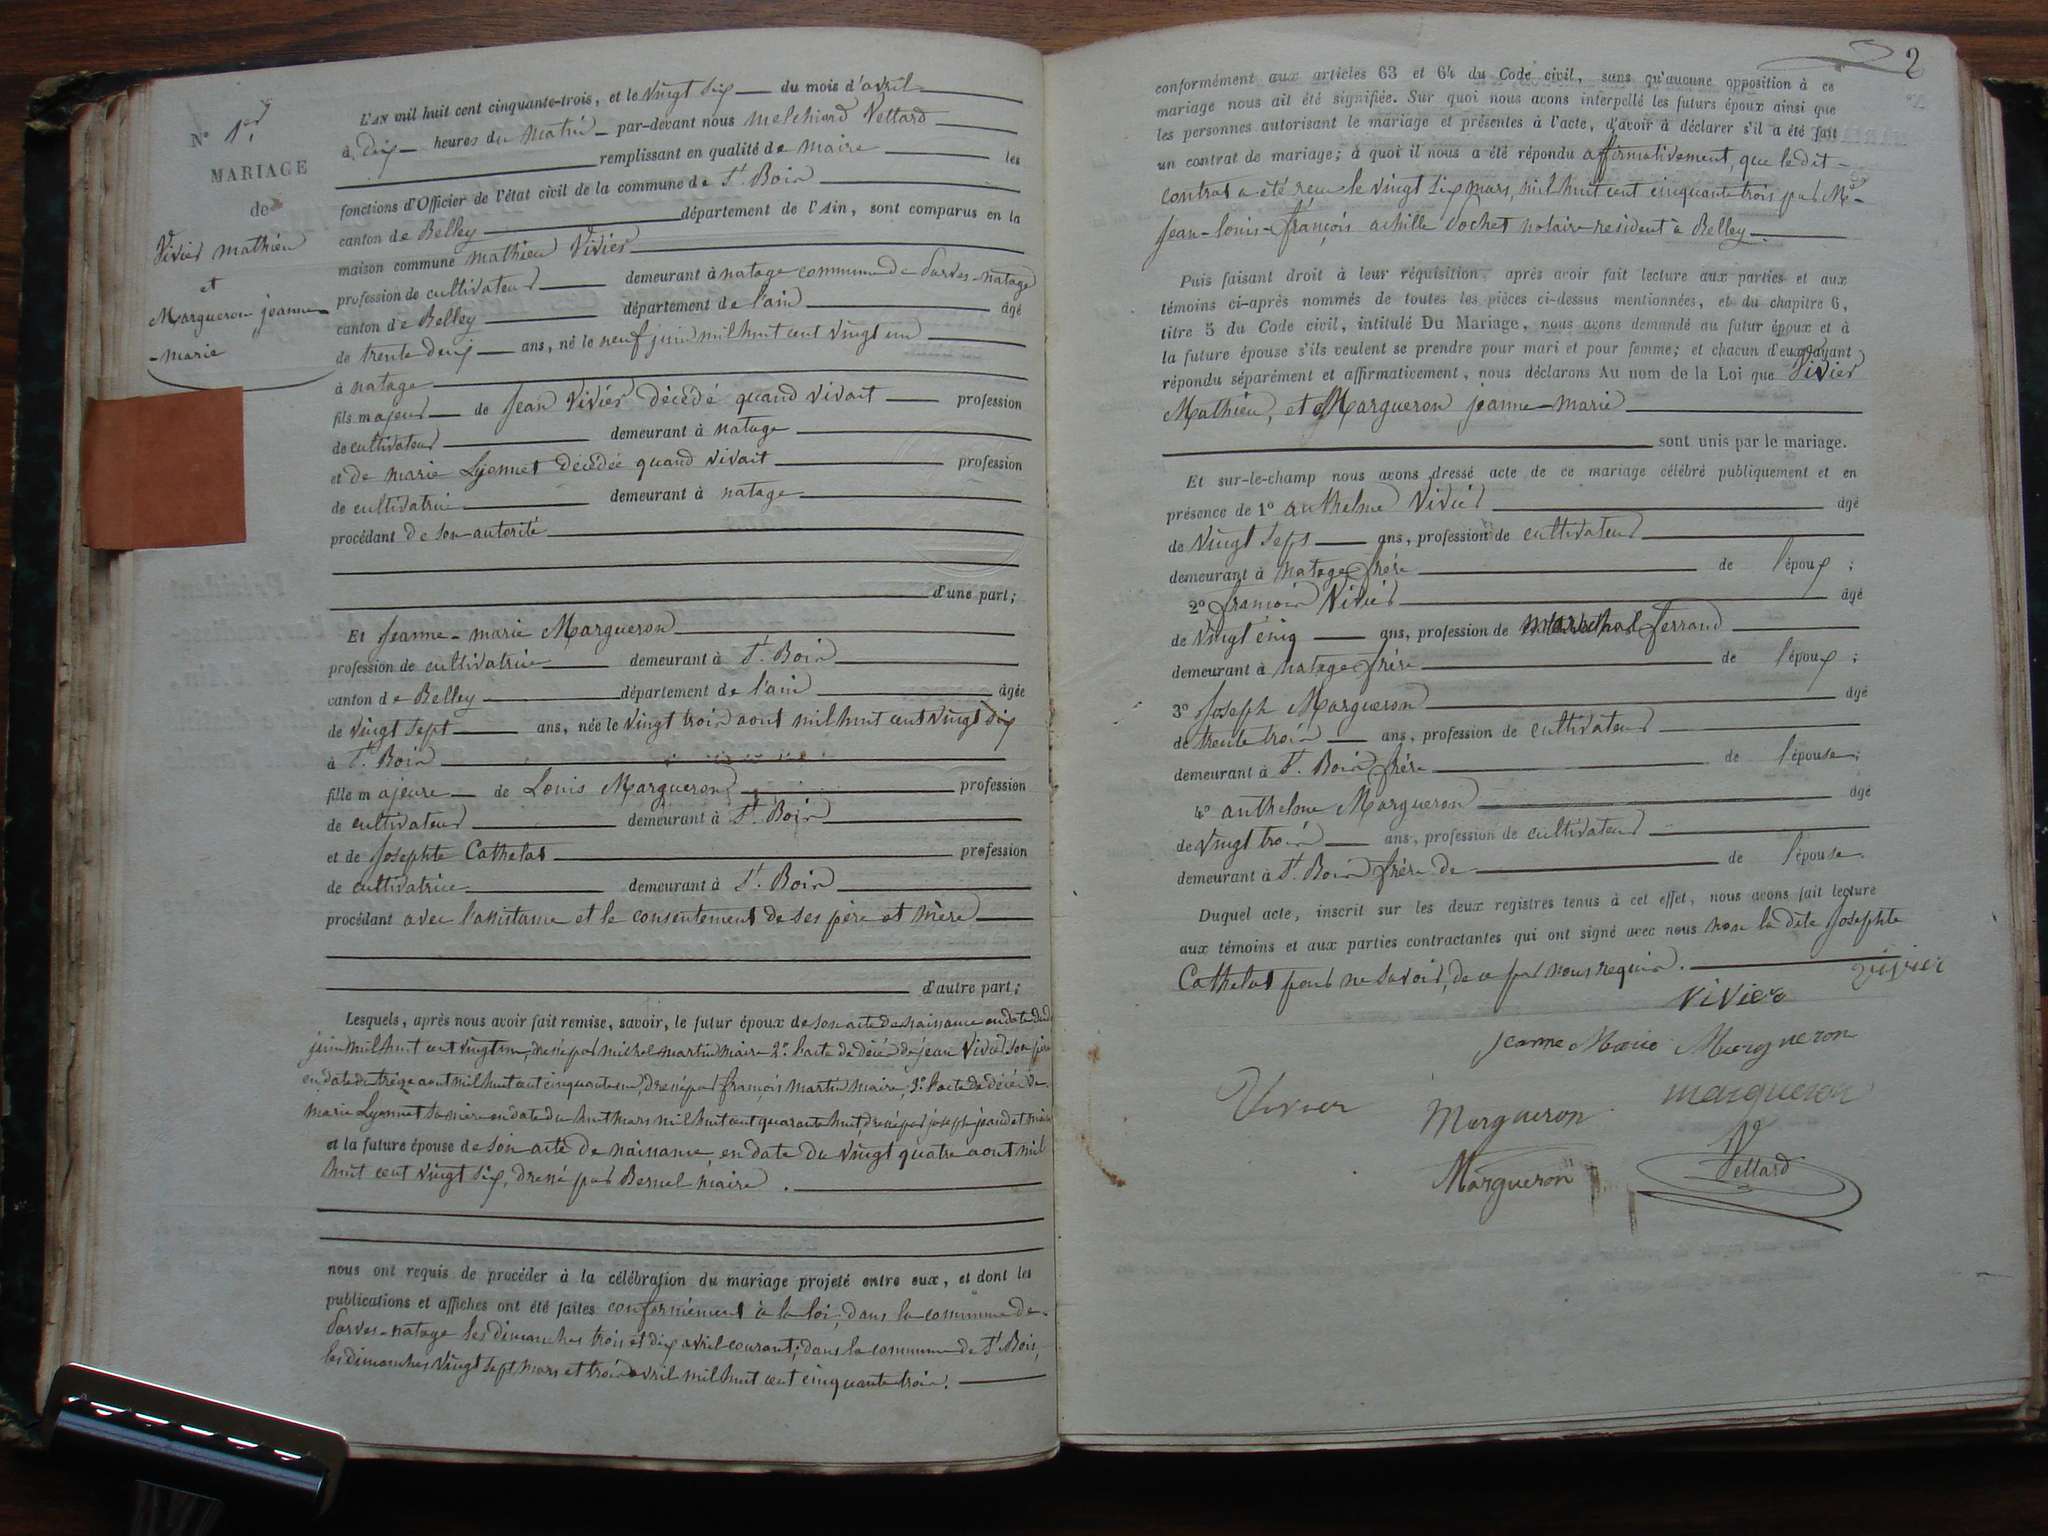 N° 1er
MARIAGE
de
Vivier mathieu
et
Margueron jeanne
-marie
L'AN mil huit cent cinquante-trois, et le vingt six du mois d'avril
à Dix heures du matin par-devant nous melchiord Vettard
remplissant en qualité de maire les
fonctions d'Officier de l'état civil de la commune de St. Bois
canton de Belley département de l'Ain, sont comparus en la
maison commune mathieu Vivier
profession de cultivateur demeurant à natage commune de Parves-natage
canton de Belley département de l'ain âgé
de trente deux ans, né le neuf juin mil huit cent vingt un
à natage
fils majeur de Jean Vivier décédé quand vivait profession
de cultivateur demeurant à natage
et de marie Lyonnet décédée quand vivait profession
de cultivatrice demeurant à natage
procédant de son autorité
d'une part;
Et Jeanne-marie Margueron
profession de cultivatrice demeurant à St. Bois
canton de Belley département de l'ain âgée
de vingt sept ans, née le vingt trois aout mil huit cent vingt six
à St. Bois
fille majeure de Louis Margueron profession
de cultivateur demeurant à St. Bois
et de Josephte Cathelat profession
de cultivatrice demeurant à St. Bois
procédant avec l'assistance et le consentement de ses père et mère
d'autre part;
Lesquels, après nous avoir fait remise, savoir, le futur époux de son acte de naissance en date du
juin mil huit cent vingt un, dressé par michel martin maire 2° l'acte de décès de jean Vivier son père
en date du treize aout mil huit cent cinquante un, dressé par françois martin maire; 3° l'acte de décès de
marie Lyonnet sa mère en date du huit mars mil huit cent quarante huit, dressé par joseph jeandet maire
et la future épouse de son acte de naissance, en date du vingt quatre aout mil
huit cent vingt six, dressé par maire.
nous ont requis de procéder à la célébration du mariage projeté entre eux, et dont les
publications et affiches ont été faites conformément à la loi; dans la commune de
Parves-natage les dimanches trois et dix avril courant; dans la commune de St Bois,
les dimanches vingt sept mars et trois avril mil huit cent cinquante trois.
2
conformément aux articles 63 et 64 du Code civil, sans qu'aucune opposition à ce
mariage nous ait été signifiée. Sur quoi nous avons interpellé les futurs époux ainsi que
les personnes autorisant le mariage et présentes à l'acte, d'avoir à déclarer s'il a été fait
un contrat de mariage; à quoi il nous a été répondu affirmativement, que le dit
contrat a été reçu le vingt six mars, mil huit cent cinquante trois par Me
Jean-louis-françois achille notaire resident à Belley
Puis faisant droit à leur réquisition, après avoir fait lecture aux parties et aux
témoins ci-après nommés de toutes les pièces ci-dessus mentionnées, et du chapitre 6,
titre 5 du Code civil, intitulé Du Mariage, nous avons demandé au futur époux et à
la future épouse s'ils veulent se prendre pour mari et pour femme; et chacun d'eux ayant
répondu séparément et affirmativement, nous déclarons Au nom de la Loi que Vivier
Mathieu, et Margueron jeanne-marie
sont unis par le mariage.
Et sur-le-champ nous avons dressé acte de ce mariage célébré publiquement et en
présence de 1° anthelme Vivier âgé
de vingt sept ans, profession de cultivateur
demeurant à Natage frère de l'époux;
2° françois Vivier âgé
de vingt cinq ans, profession de marechal ferrand
demeurant à natage frère de l'époux;
3° Joseph Margueron âgé
de trente trois ans, profession de cultivateur
demeurant à St. Bois frère de l'épouse;
4° anthelme Margueron âgé
de vingt trois ans, profession de cultivateur
demeurant à St. Bois frère de de l'épouse.
Duquel acte, inscrit sur les deux registres tenus à cet effet, nous avons fait lecture
aux témoins et aux parties contractantes qui ont signé avec nous non la dite Josephte
Cathelat pour ne savoir, de ce par nous requis.
vivier
vivier
jeanne Marie Margueron
Vivier
Margueron
margueron
Margueron
Vettard